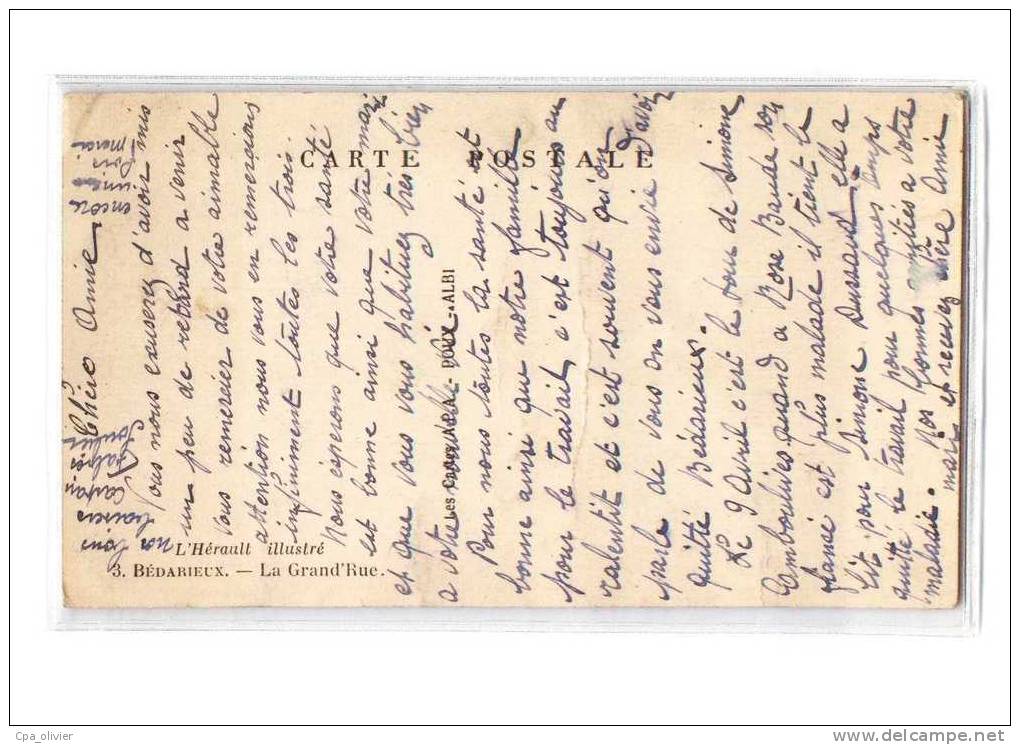 CARTE POSTALE
L'Hérault illustré
3. BÉDARIEUX. — La Grand'Rue.
ALBI
Chère Amie
Vous nous excuserez d'avoir mis
un peu de retard a venir
vous remercier de votre aimable
attention nous vous en remercions
infiniment toutes les trois.
Nous espérons que votre santé
est bonne ainsi que votre mari
et que vous vous habituez très bien
a votre
Pour nous toutes la santé est
bonne ainsi que notre famille
pour le travail c'est toujours au
ralentit et c'est souvent qu'on
parle de vous on vous envie d'avoir
quitté Bédarieux.
Le 9 Avril c'est le tour de Simone
Camboulives quand a Rose son
fiancé est plus malade il tient le
lit pour Simone elle a
quitté le travail pour quelques temps
maladie. Nos bonnes amitiés a votre
mari et recevez chère Amie
nos bons baisers
encore
une
fois
merci
Cpa_olivier
www.delcampe.net